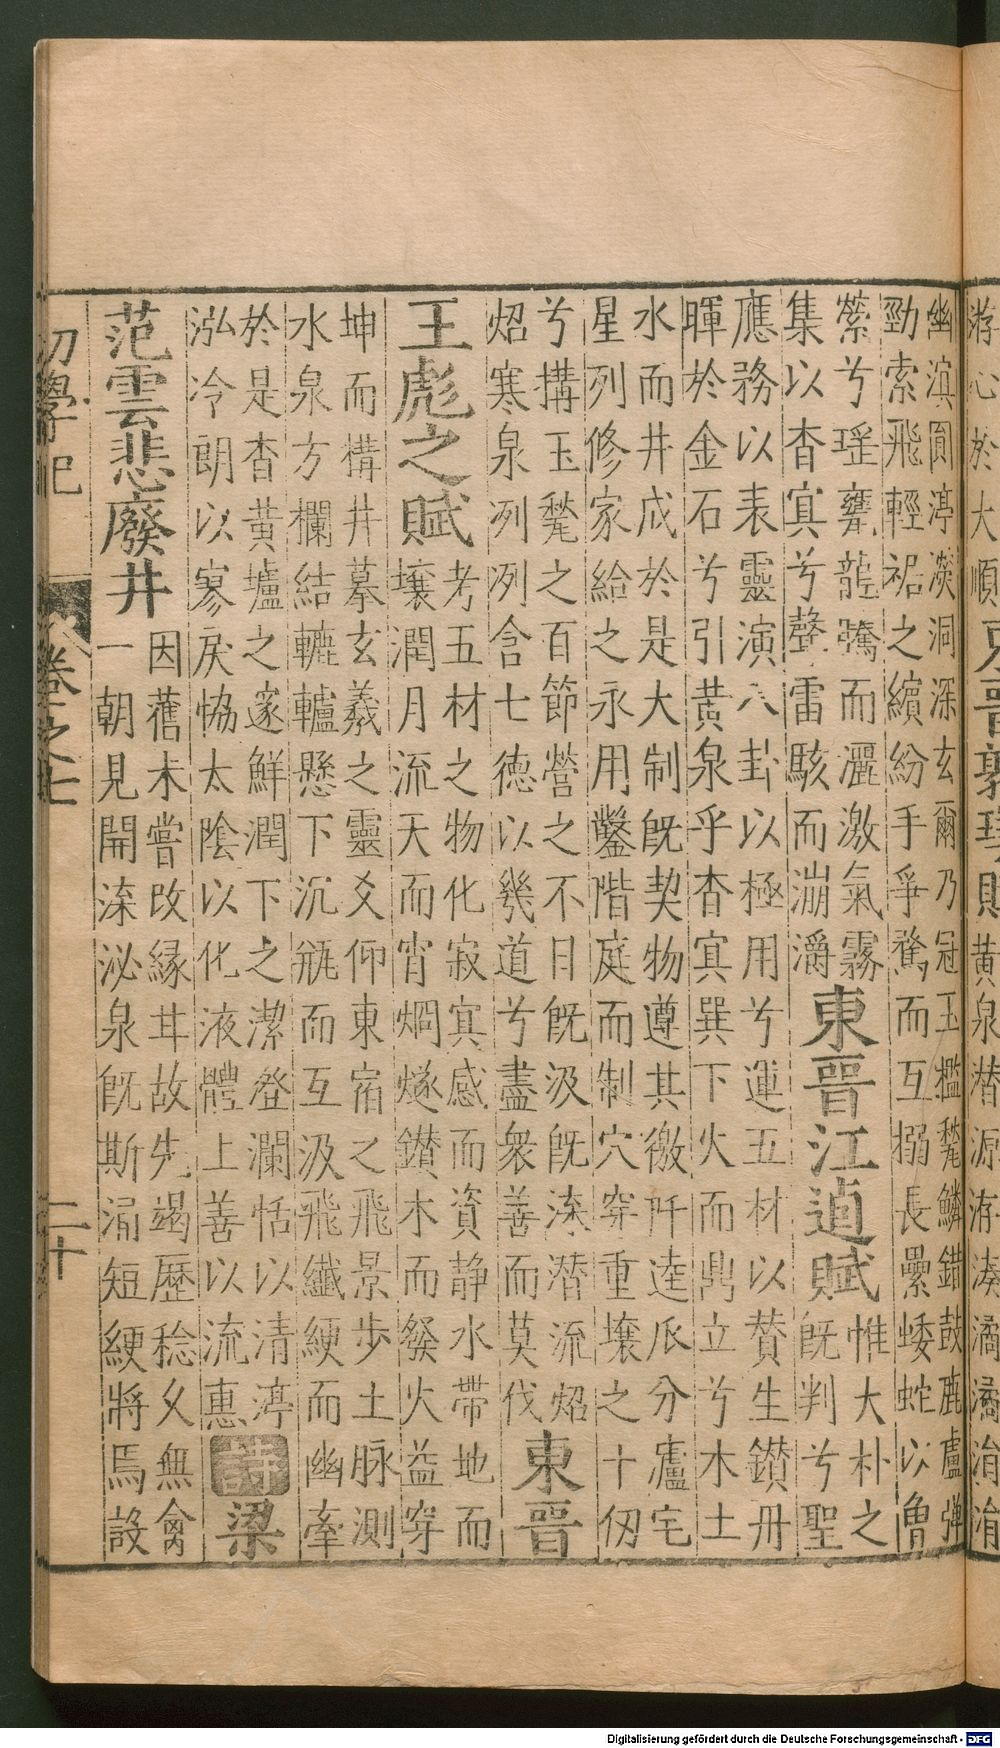 濸心於大順東晉郭璞賦黃泉潜源洊湊潏潏涓涓
幽滇圓渟濙洞深玄爾乃冠玉檻甃鱗錯鼓鹿盧弹
勁索飛輕裾之繽紛手爭驁而互搦長縲蜲蛇以曾
縈兮瑶甕龍騰而灑激氣霧
集以杳㝠兮聲雷駭而漰灂
東晉江逌賦
惟大朴之
既判兮聖
應務以表靈演八卦以極用兮運五材以賛生鑚丹
暉於金石兮引黄泉乎杳㝠巽下火而鼎立兮木土
水而井成於是大制旣契物遵其徼阡逵𠂢分廬宅
星列修家給之永用鑿階庭而制穴穿重壤之十仭
兮搆玉甃之百節營之不日旣汲旣渫潜流炤
炤寒泉冽冽含七德以幾道兮盡衆善而莫伐
東晉
王彪之賦
考五材之物化寂㝠感而資静水帶地而
壤潤月流天而宵烱燧鑚木而發火益穿
坤而構井摹玄羲之靈爻仰東宿之飛景步土脉測
水泉方欄結轆轤懸下沉瓶而互汲飛纎綆而幽牽
於是杳黄壚之邃鮮潤下之潔登瀾恬以清渟
泓冷朗以寥戾恊太陰以化液體上善以流惠
詩
梁
范雲悲廢井
因舊未嘗改縁甘故先竭歴稔乆無禽
一朝見開渫泌泉旣斯涸短綆將焉設
初學記
卷之七
二十
Digitalisierung gefördert durch die Deutsche Forschungsgemeinschaft - DFG